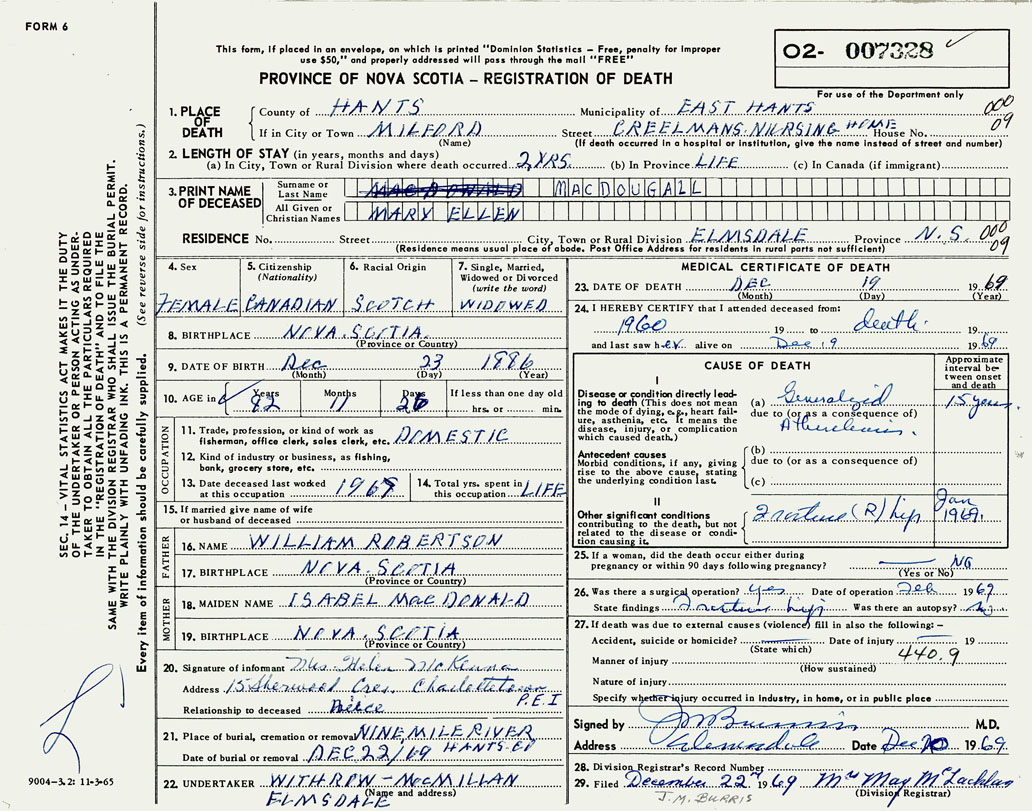 FORM 6
02- 007328
For use of the Department only
This form, if placed in an envelope, on which is printed "Dominion Statistics – Free, penalty for improper
use $50," and properly addressed will pass through the mail "FREE"
PROVINCE OF NOVA SCOTIA – REGISTRATION OF DEATH
SEC. 14 – VITAL STATISTICS ACT MAKES IT THE DUTY
OF THE UNDERTAKER OR PERSON ACTING AS UNDER-
TAKER TO OBTAIN ALL THE PARTICULARS REQUIRED
IN THE "REGISTRATION OF DEATH" AND TO FILE THE
SAME WITH THE DIVISION REGISTRAR WHO SHALL ISSUE THE BURIAL PERMIT.
WRITE PLAINLY WITH UNFADING INK. THIS IS A PERMANENT RECORD.
Every item of information should be carefully supplied. (See reverse side for instructions.)
1. PLACE OF DEATH
County of HANTS Municipality of EAST HANTS 000
If in City or Town MILFORD Street CREELMANS NURSING HOME House No. 09
(Name) (If death occurred in a hospital or institution, give the name instead of street and number)
2. LENGTH OF STAY (in years, months and days)
(a) In City, Town or Rural Division where death occurred 2 YRS. (b) In Province LIFE (c) In Canada (if immigrant)
3. PRINT NAME OF DECEASED
Surname or Last Name MACDONALD MACDOUGALL
All Given or Christian Names MARY ELLEN
RESIDENCE No. Street City, Town or Rural Division ELMSDALE Province N.S. 000 09
(Residence means usual place of abode. Post Office Address for residents in rural parts not sufficient)
4. Sex
FEMALE
5. Citizenship (Nationality)
CANADIAN
6. Racial Origin
SCOTCH
7. Single, Married, Widowed or Divorced (write the word)
WIDOWED
8. BIRTHPLACE NOVA SCOTIA
(Province or Country)
9. DATE OF BIRTH Dec 23 1886
(Month) (Day) (Year)
10. AGE in Years Months Days If less than one day old
82 11 26 hrs. or min.
OCCUPATION
11. Trade, profession, or kind of work as
fisherman, office clerk, sales clerk, etc. DOMESTIC
12. Kind of industry or business, as fishing,
bank, grocery store, etc.
13. Date deceased last worked at this occupation 1967
14. Total yrs. spent in this occupation LIFE
15. If married give name of wife
or husband of deceased
FATHER
16. NAME WILLIAM ROBERTSON
17. BIRTHPLACE NOVA SCOTIA
(Province or Country)
MOTHER
18. MAIDEN NAME ISABEL MacDONALD
19. BIRTHPLACE NOVA SCOTIA
(Province or Country)
20. Signature of informant Mrs. Helen McKenna
Address 15 Sherwood Cres. Charlottetown
P.E.I
Relationship to deceased Neice
21. Place of burial, cremation or removal NINE MILE RIVER
HANTS CO
Date of burial or removal DEC 22/69
22. UNDERTAKER WITHROW – McMILLAN
(Name and address)
ELMSDALE
9004–3.2: 11-3-65
MEDICAL CERTIFICATE OF DEATH
23. DATE OF DEATH DEC 19 1969
(Month) (Day) (Year)
24. I HEREBY CERTIFY that I attended deceased from:
1960 19 to death 19
and last saw her alive on Dec 19 1969
CAUSE OF DEATH
Approximate interval between onset and death
I
Disease or condition directly lead-
ing to death (This does not mean
the mode of dying, e.g., heart fail-
ure, asthenia, etc. It means the
disease, injury, or complication
which caused death.)
(a) Generalized 15 years
due to (or as a consequence of)
Antecedent causes
Morbid conditions, if any, giving
rise to the above cause, stating
the underlying condition last.
(b)
due to (or as a consequence of)
(c)
II
Other significant conditions
contributing to the death, but not
related to the disease or condi-
tion causing it.
Fracture (R) hip Jan 1969.
25. If a woman, did the death occur either during
pregnancy or within 90 days following pregnancy? NO
(Yes or No)
26. Was there a surgical operation? yes Date of operation Feb 1969
State findings Fracture hip Was there an autopsy? no
27. If death was due to external causes (violence) fill in also the following: –
Accident, suicide or homicide? Date of injury 19
(State which)
440.9
Manner of injury
(How sustained)
Nature of injury
Specify whether injury occurred in industry, in home, or in public place
Signed by M.D.
Address Elmsdale Date Dec 1969
28. Division Registrar's Record Number
29. Filed December 22nd 1969 Mrs May McLachlan
(Division Registrar)
J.M. BURRIS